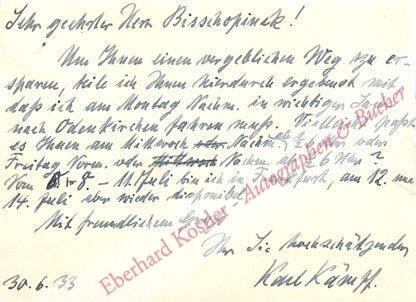 Sehr geehrter Herr Bisschopinck!
Um Ihnen einen vergeblichen Weg zu er-
sparen, teile ich Ihnen hierdurch ergebenst mit
daß ich am Montag Nachm. in wichtiger
nach Odenkirchen fahren muß. Vielleicht paßt
es Ihnen am Mittwoch Nachm. oder
Freitag Vorm. oder Nachm. 6 Uhr?
Vom 8. - 11. Juli bin ich in Frankfurt, am 12. und
14. Juli aber wieder disponibel
Mit freundlichem Gruß
Ihr Sie hochschätzender
30.6.33 Karl Kämpf.
Eberhard Köstler - Autographen & Bücher